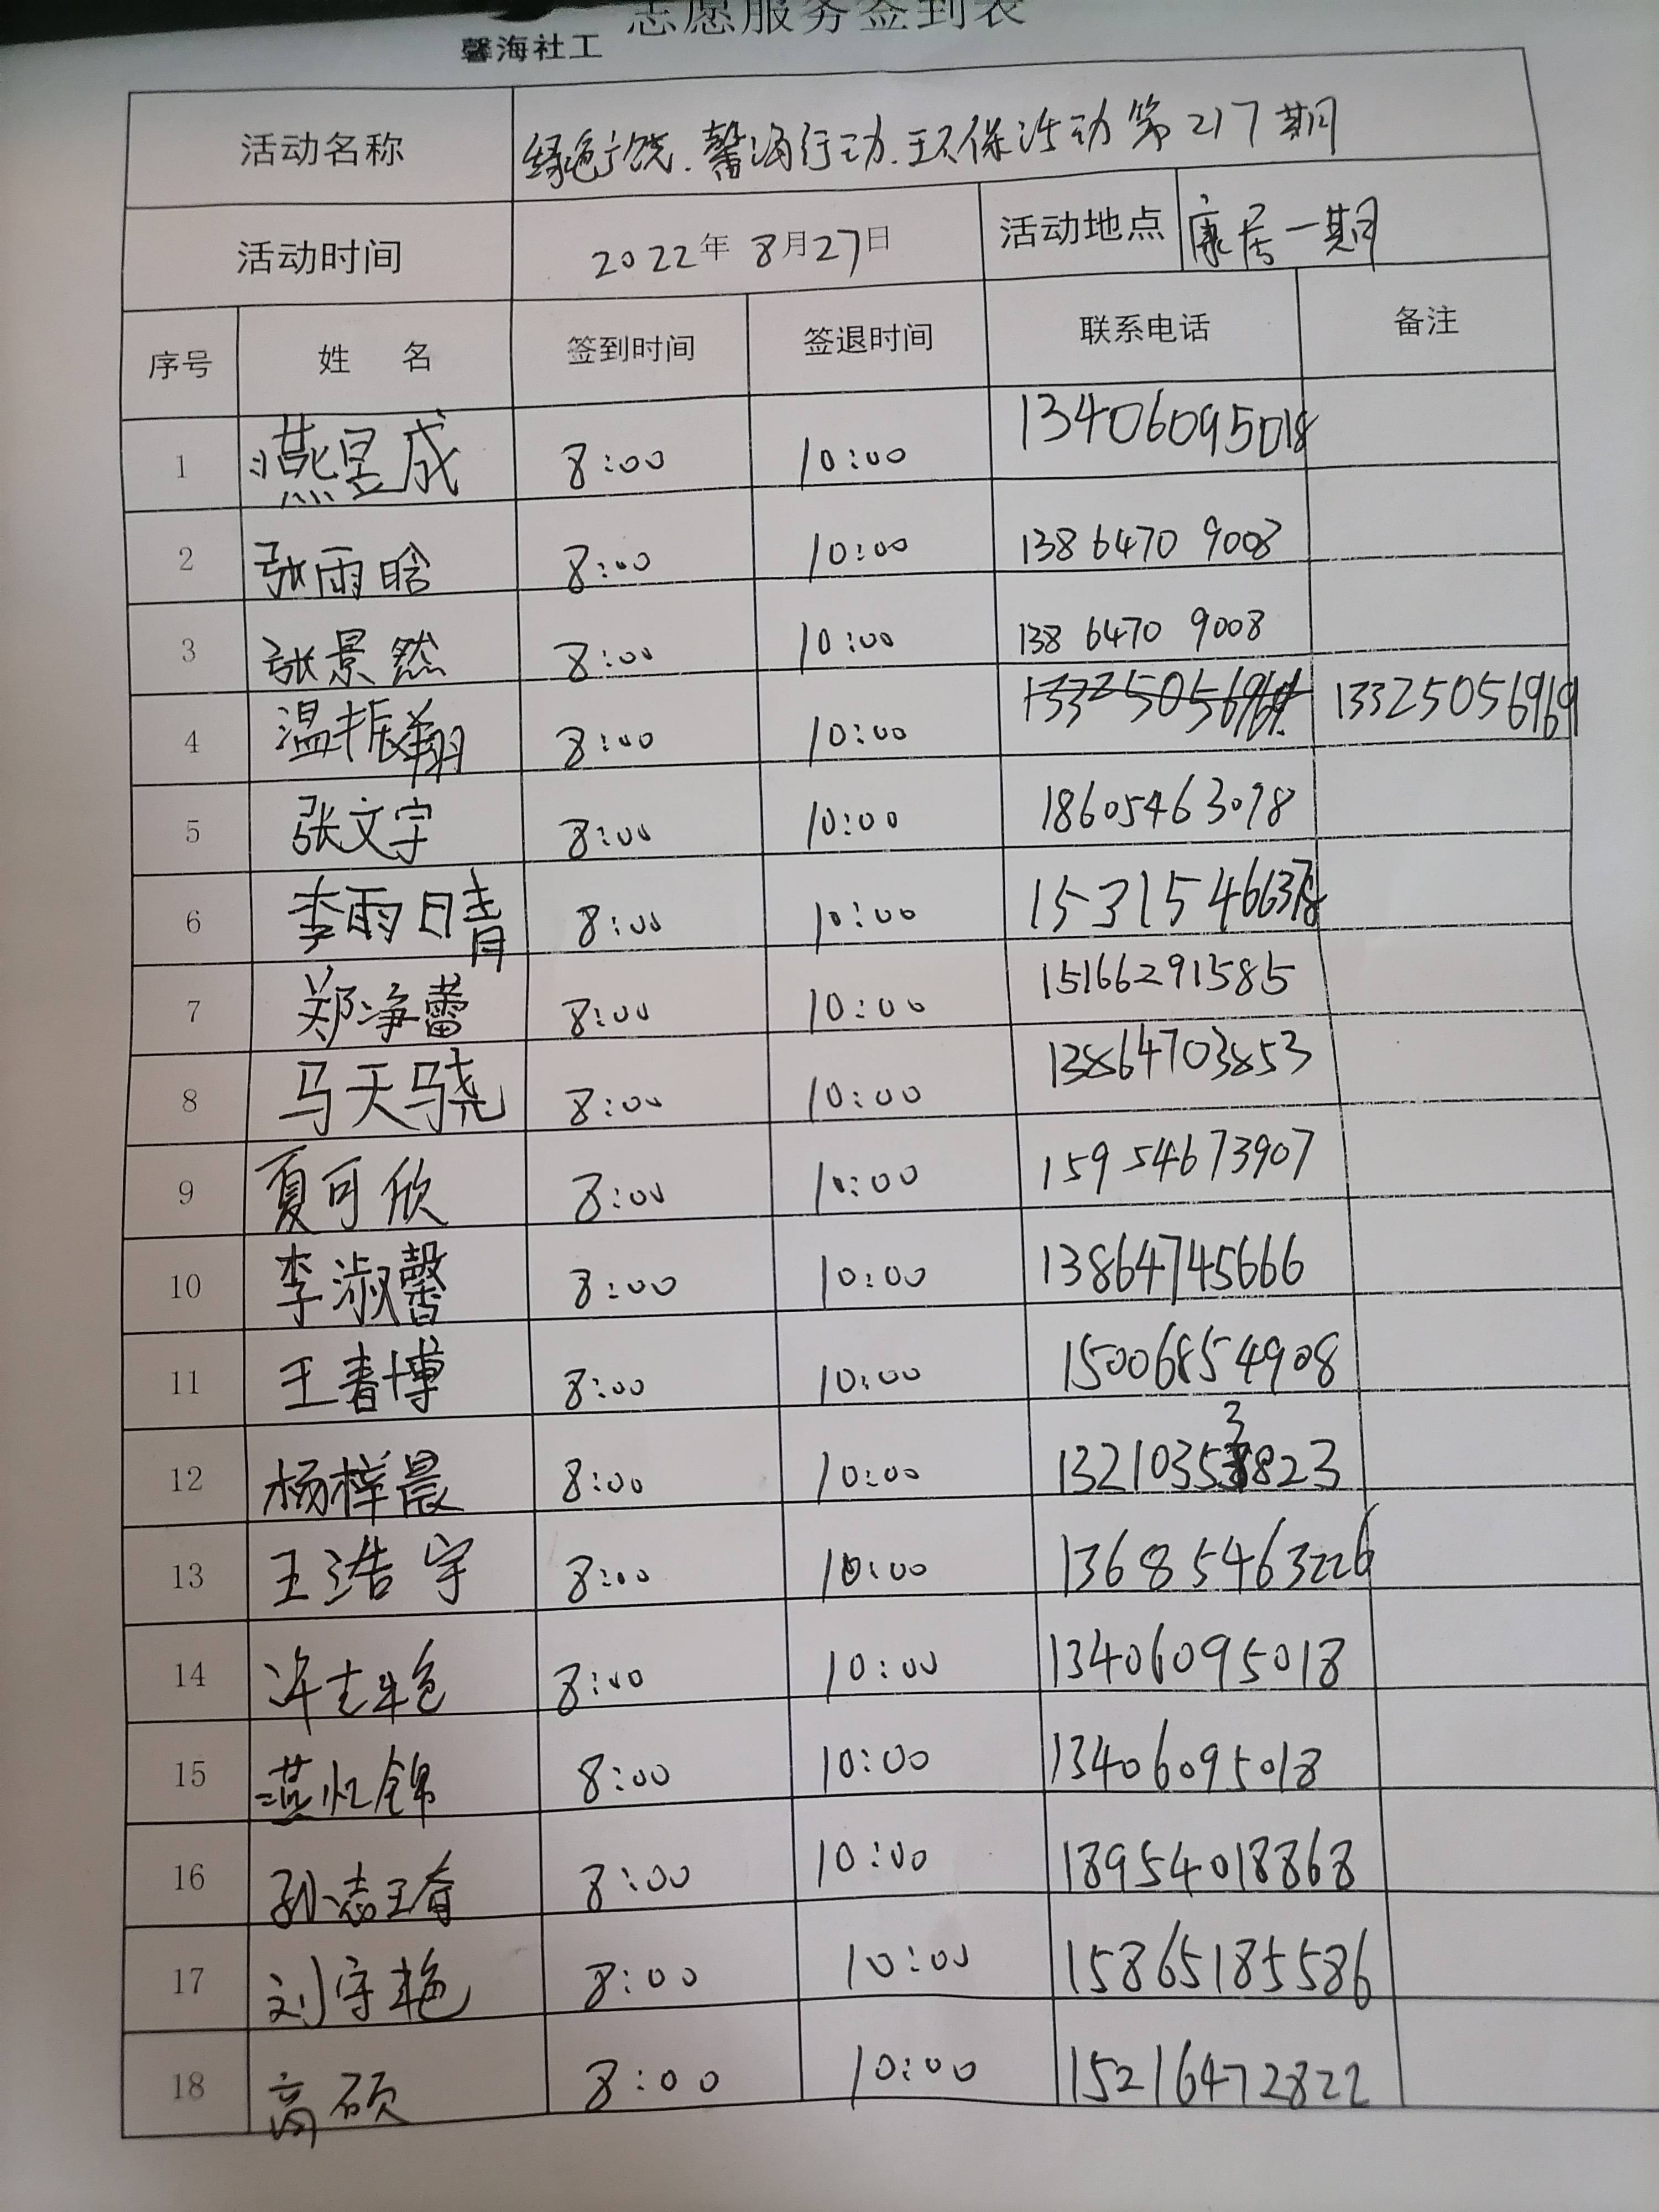 志愿服务签到表
馨海社工
活动名称 绿色广饶.馨海行动.环保活动第217期
活动时间 2022年8月27日 活动地点 康居一期
序号 姓 名 签到时间 签退时间 联系电话 备注
1 燕昱成 8:00 10:00 13406095018
2 张雨晗 8:00 10:00 13864709008
3 张景然 8:00 10:00 13864709008
4 温振翔 8:00 10:00 13325056969 13325056969
5 张文宇 8:00 10:00 18605463098
6 李雨晴 8:00 10:00 15315466378
7 郑净蕾 8:00 10:00 15166291585
8 马天骁 8:00 10:00 13864703853
9 夏可欣 8:00 10:00 15954673907
10 李淑馨 8:00 10:00 13864745666
11 王春博 8:00 10:00 15006854908
12 杨梓晨 8:00 10:00 13210353823
13 王浩宇 8:00 10:00 13685463226
14 许志艳 8:00 10:00 13406095018
15 燕忆锦 8:00 10:00 13406095018
16 孙志 8:00 10:00 18954018868
17 刘守艳 8:00 10:00 15865185586
18 高硕 8:00 10:00 15216472822